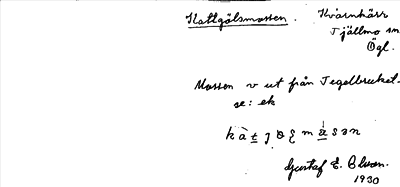 Kattgölsmossen. Kvarnkärr
Tjällmo sn
Ögl.
Mossen v ut från Tegelbruket.
se: ek
Gustaf E. Olsson.
1930